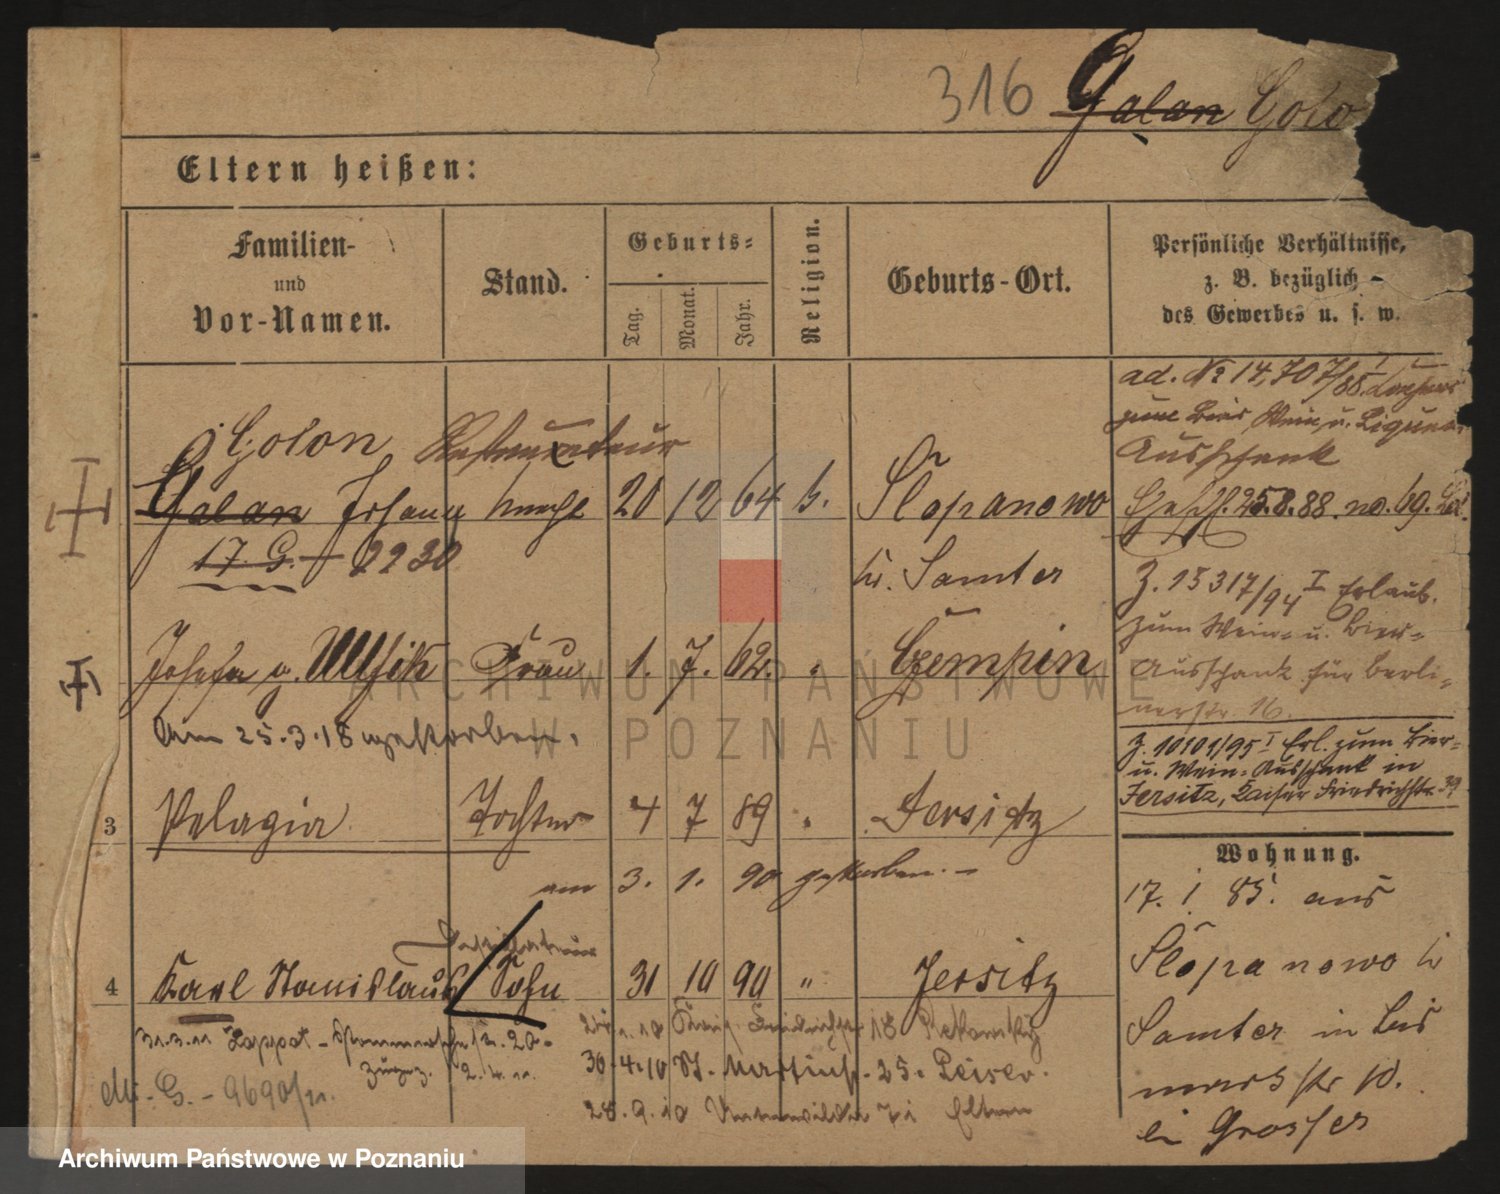 316 Galan Golo
Eltern heißen:
Familien-
und
Vor-Namen.
Stand.
Geburts-
Tag.
Monat.
Jahr.
Religion.
Geburts-Ort.
Persönliche Verhältnisse,
z. B. bezüglich
des Gewerbes u. s. w.
ad. № 14,707/88 I
zum Bier, Wein u. Liqueur
Ausschank
Gesch. 25.8.88. no. 69.
Golon Restaurateur
Galan Johann Knecht 20 12 64 k. Slopanowo
17. G. 2230
Kr. Samter
Z. 15317/94 I Erlaub.
zum Wein- u. Bier-
Ausschank für Berli-
nerstr. 16.
Josefa g. Frau 1. 7. 62. " Czempin
am 25.3.18 gestorben.
Z. 10101/95 I Erl. zum Bier-
u. Wein-Ausschank in
Jersitz, Kaiser Friedrichstr. 39
3 Pelagia Tochter 4 7 89 " Jersitz
am 3. 1. 90 gestorben. –
Wohnung.
17. 1 85. aus
Slopanowo Kr
Samter in Bis
marckstr 10.
bei Grosser
Destillateur
4 Karl Stanislaus Sohn 31 10 90 " Jersitz
31.3.11 Zoppot - Pommerschestr. 20-
zurück 2.4.11.
18
30.4.10 St. Martinstr. 25. Peiser.
28.9.10 Unterwilda 71 Eltern
M. G. - 9690/11.
ARCHIWUM PAŃSTWOWE
W POZNANIU
Archiwum Państwowe w Poznaniu